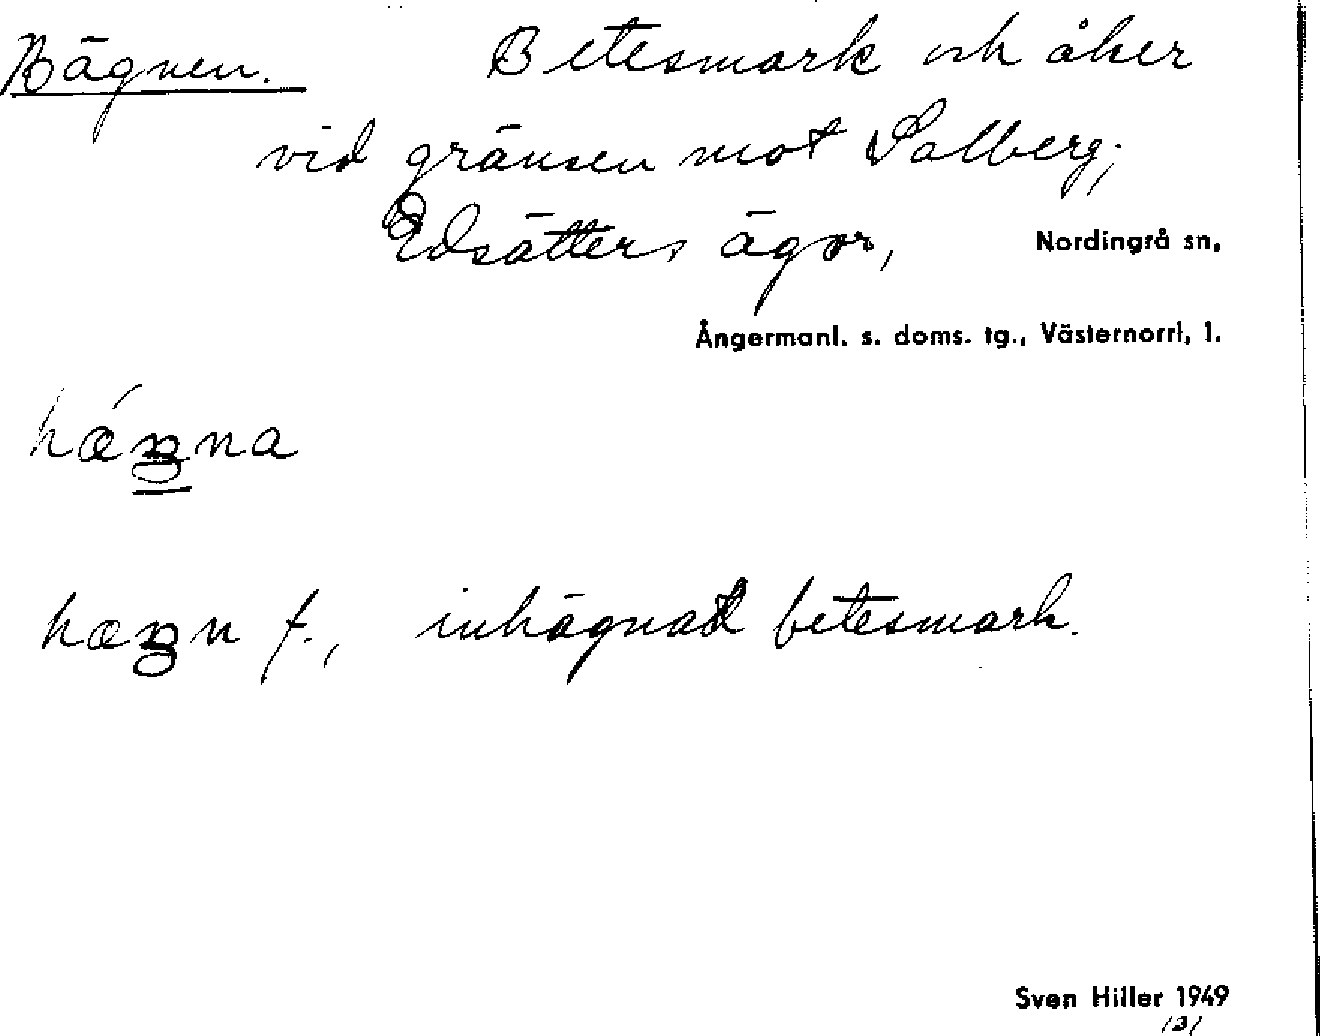 Hägnen. Betesmark och åker
vid gränsen mot Salberg;
Edsätters ägor, Nordingrå sn,
Ångermanl. s. doms. tg., Västernorrl, l.
hǽŋna
hæŋn f., inhägnad betesmark.
Sven Hiller 1949